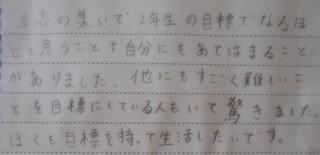 立志の集いで2年生の目標でなるほ
どと思うことや自分にもあてはまること
がありました。他にもすごく難しいこ
とを目標にしている人もいて驚きました。
ぼくも目標を持って生活したいです。